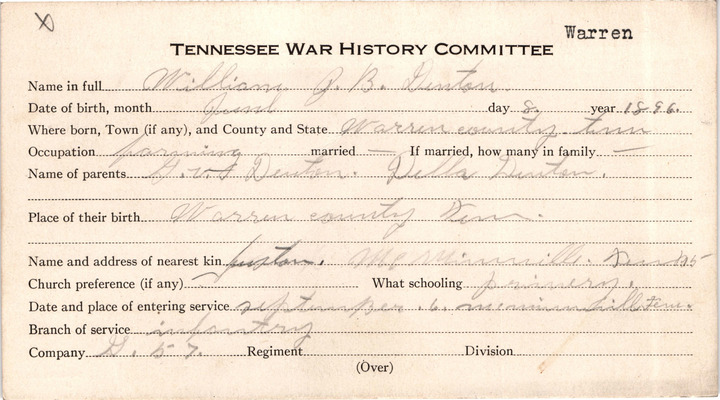 X
Warren
TENNESSEE WAR HISTORY COMMITTEE
Name in full William J. B. Denton
Date of birth, month June day 8. year 1896.
Where born, Town (if any), and County and State Warren county tenn
Occupation farming married — If married, how many in family —
Name of parents Denton. Della Denton.
Place of their birth Warren county Tenn.
Name and address of nearest kin McMinnville. Tenn R5
Church preference (if any) What schooling primery.
Date and place of entering service september. 6. mcminnvill Tenn.
Branch of service infantry
Company G. 57. Regiment Division
(Over)